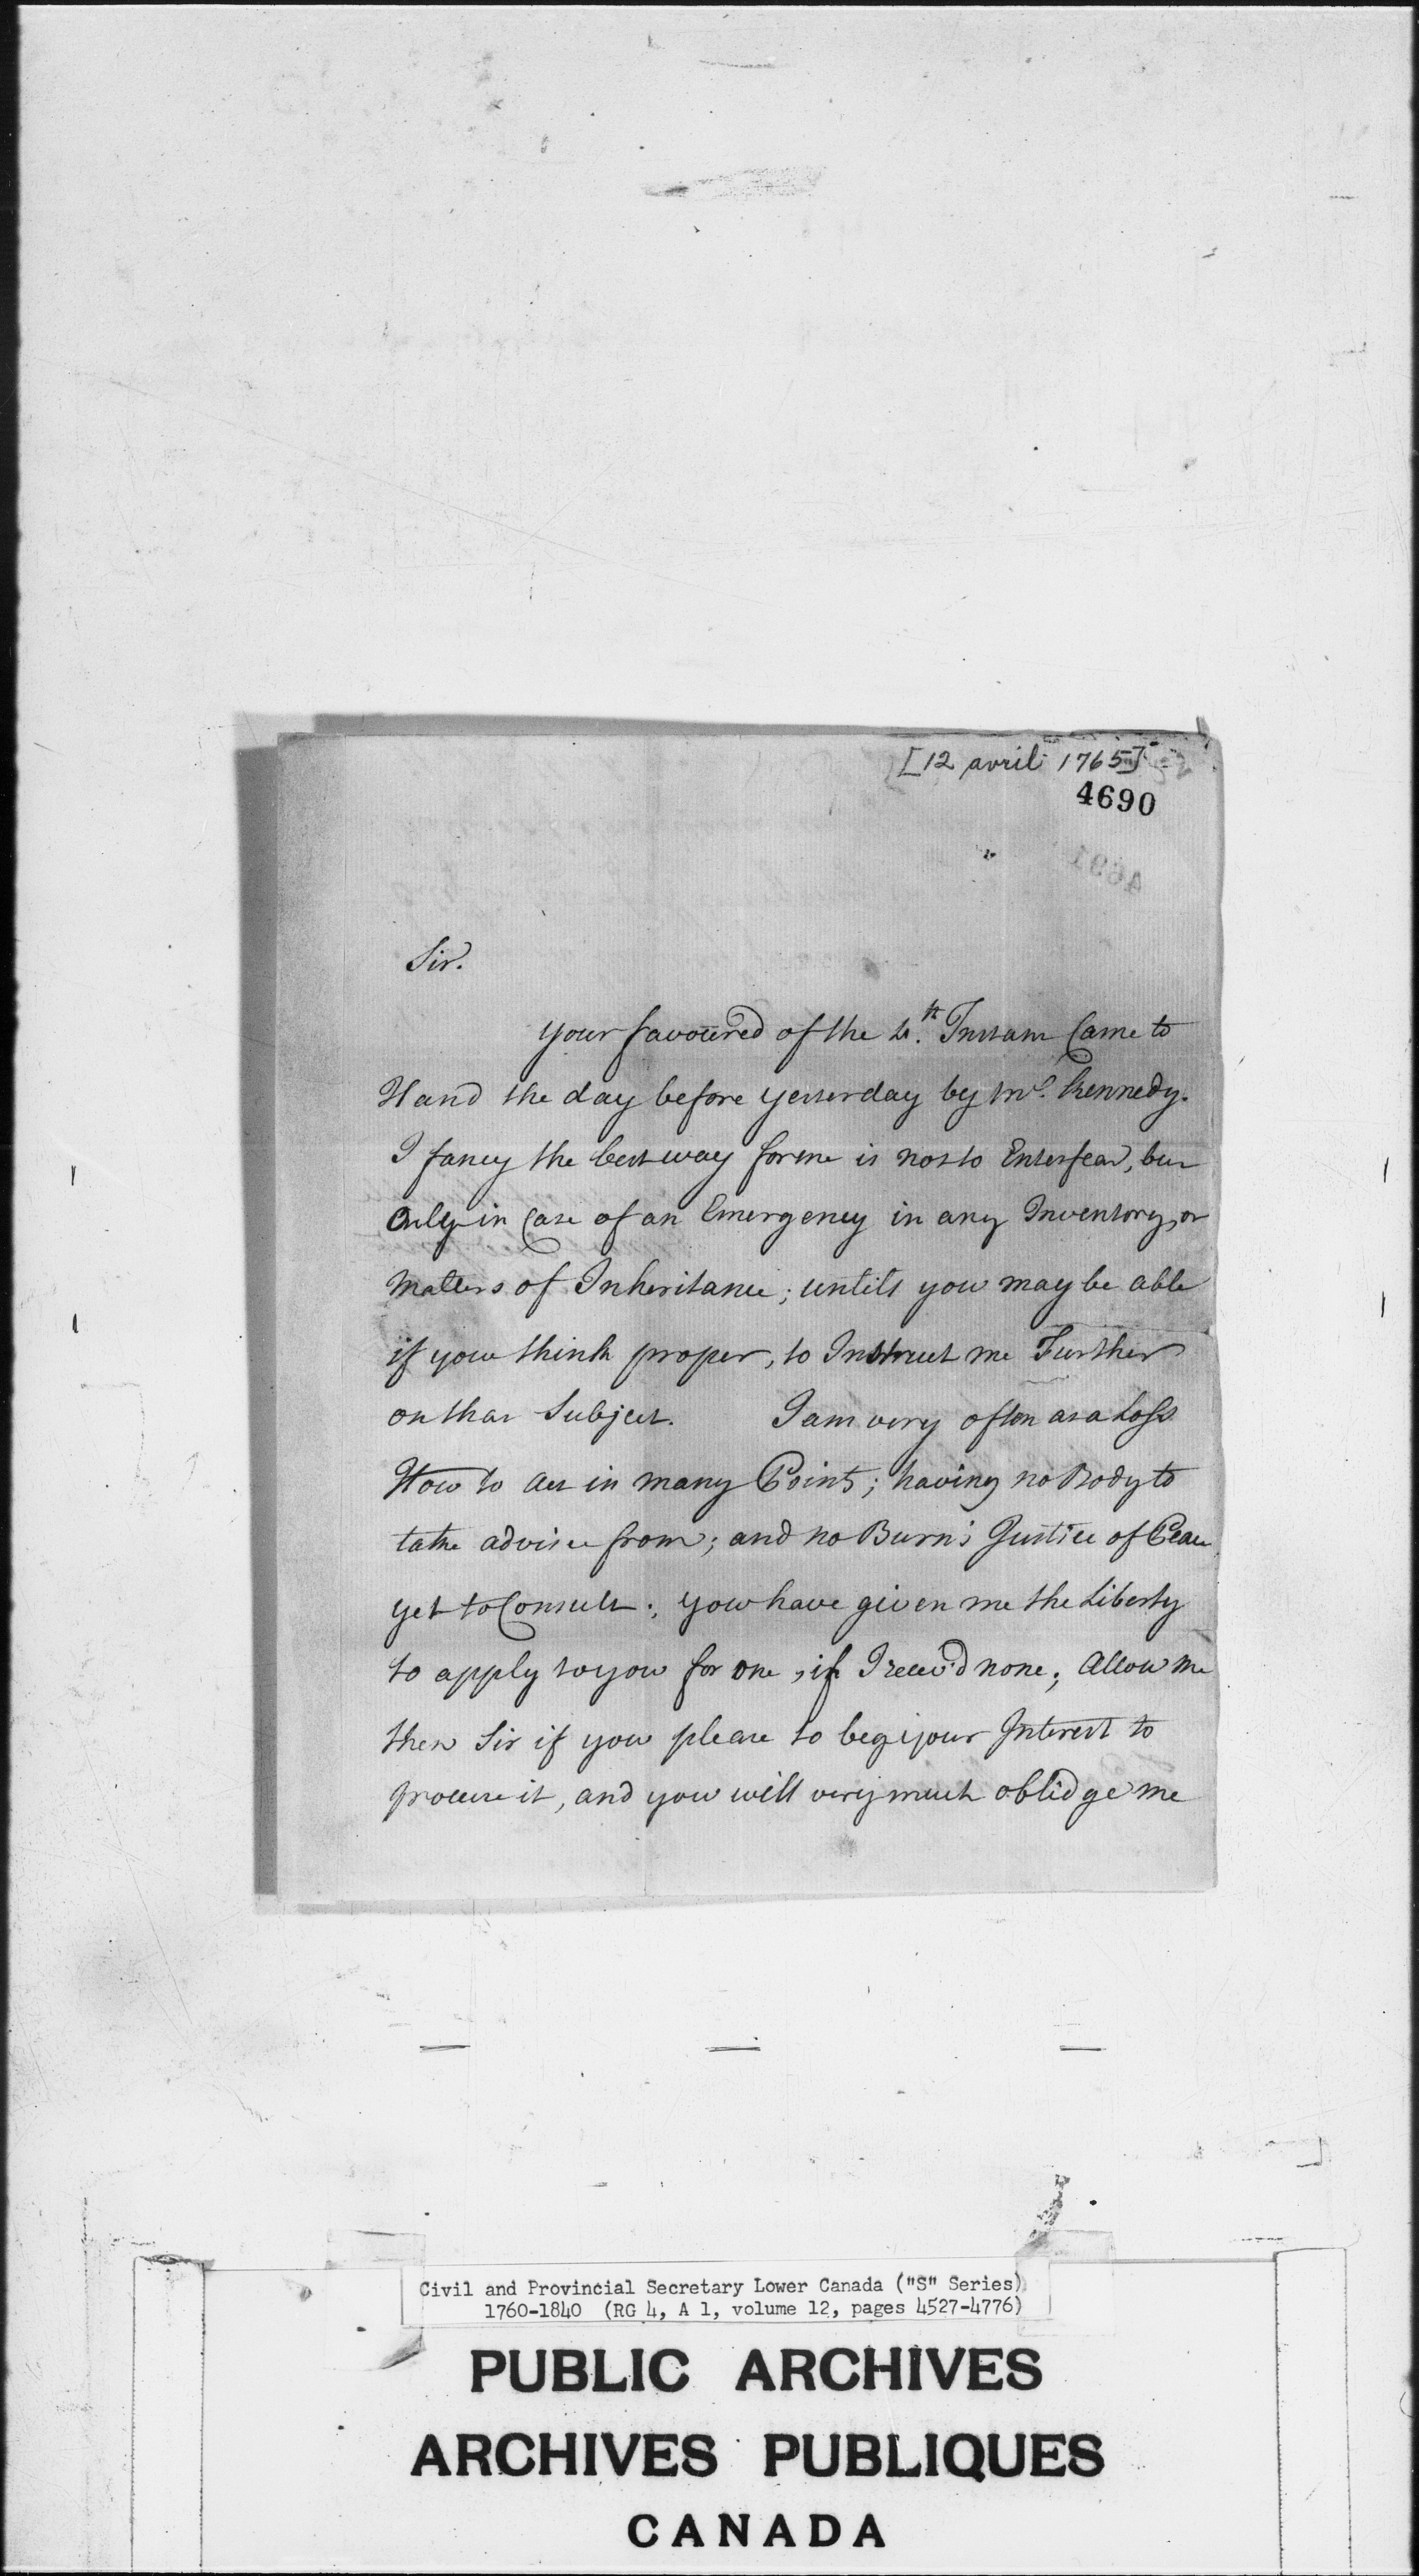 [12 avril 1765]
4690
4691
Sir.
Your favoured of the 4.th Instant Came to
Hand the day before yesterday by Mr. Kennedy.
I fancy the best way for me is not to Enterfear, but
Only in Case of an Emergency in any Inventory, or
Matters of Inheritance; untils you may be able
if you think proper, to Instruct me Further
on that Subject. I am very often at a Loss
How to Act in many Points; having no Body to
take advise from; and no Burn's Justice of Peace
yet to Consult; you have given me the Liberty
to apply to you for one, if I recev'd none; Allow me
then Sir if you please to beg your Interest to
procure it, and you will very much oblidge me
Civil and Provincial Secretary Lower Canada ("S" Series)
1760-1840 (RG 4, A 1, volume 12, pages 4527-4776)
PUBLIC ARCHIVES
ARCHIVES PUBLIQUES
CANADA